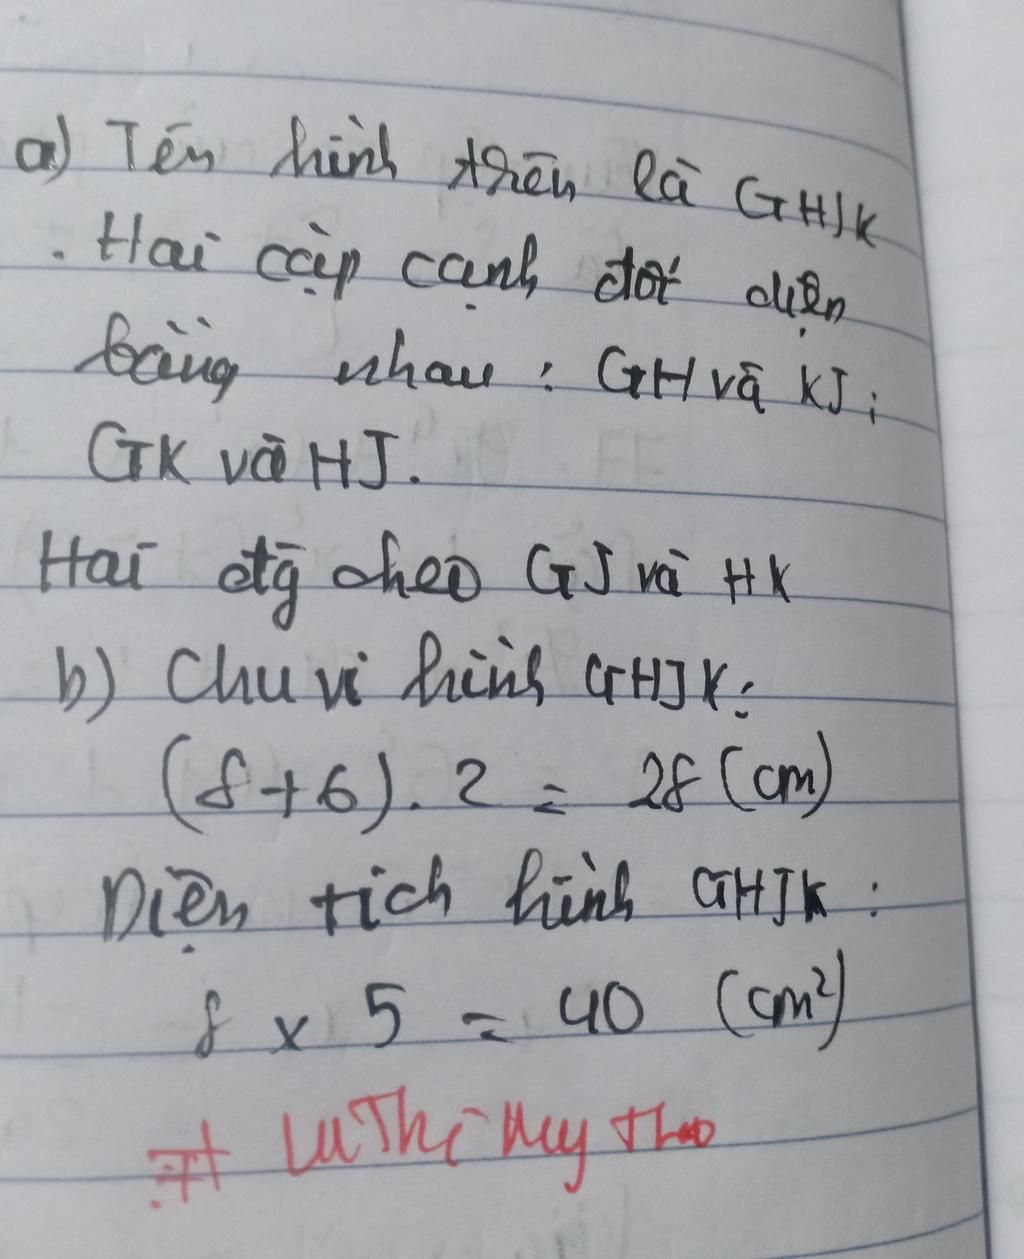 a) Tên hình trên là GHJK
. Hai cặp cạnh đối diện
bằng nhau : GH và KJ ;
GK và HJ.
Hai đg chéo GJ và HK
b) Chu vi hình GHJK :
(8+6) . 2 = 28 (cm)
Diện tích hình GHJK :
8 x 5 = 40 (cm²)
Thị My Thảo